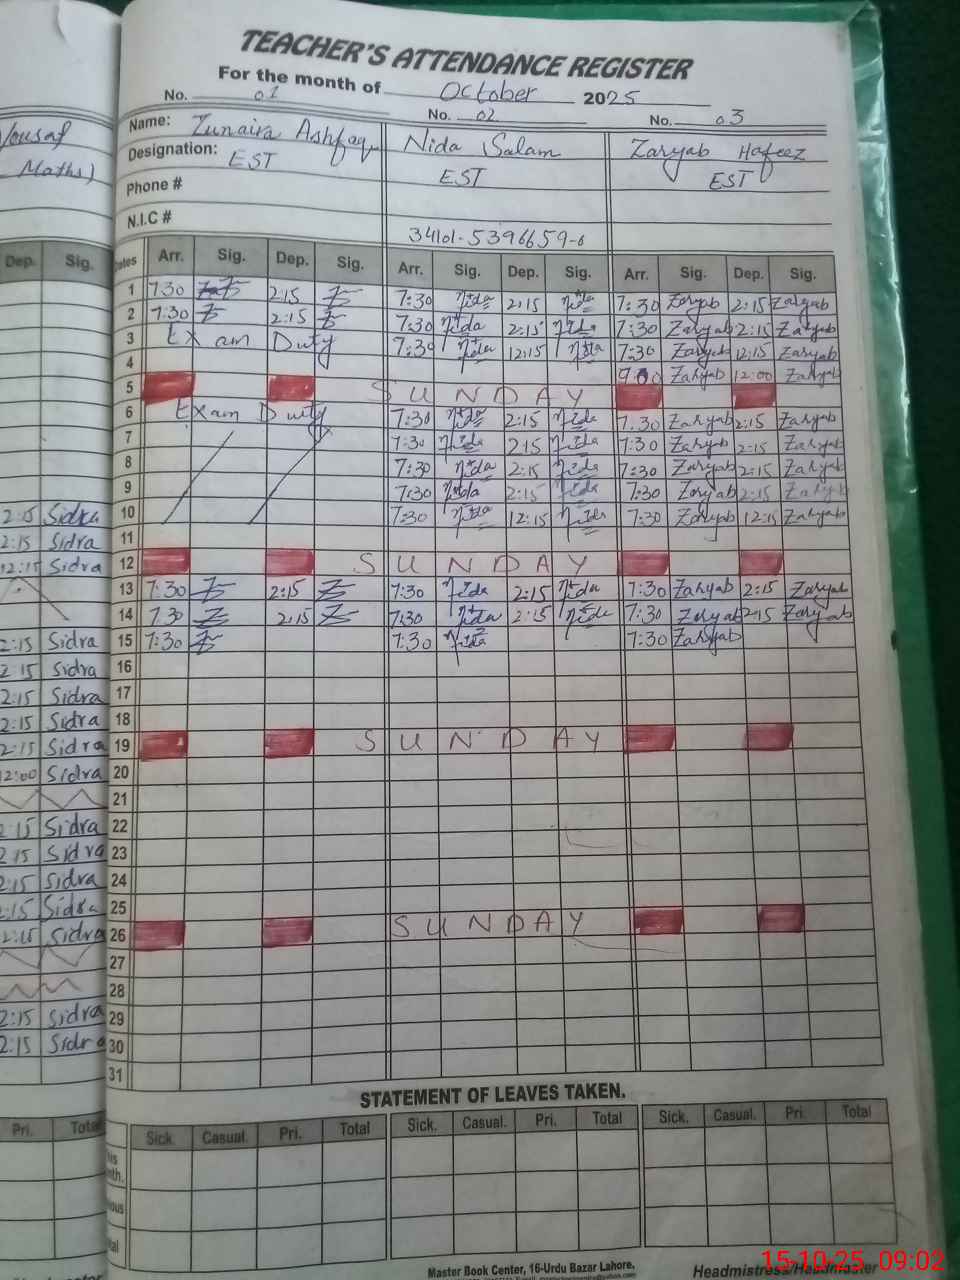 TEACHER'S ATTENDANCE REGISTER
For the month of October 2025
No. 01 No. 02 No. 03
Name: Zunaira Ashfaq Nida Salam Zaryab Hafeez
Designation: EST EST EST
Phone #
N.I.C # 34101-5396659-6
Maths)
Dep. Sig. Dates Arr. Sig. Dep. Sig. Arr. Sig. Dep. Sig. Arr. Sig. Dep. Sig.
1 7:30 2:15 7:30 Nida 2:15 Nida 7:30 Zaryab 2:15 Zaryab
2 7:30 2:15 7:30 Nida 2:15 Nida 7:30 Zaryab 2:15 Zaryab
3 Exam Duty 7:30 Nida 12:15 Nida 7:30 Zaryab 12:15 Zaryab
4 9:00 Zaryab 12:00 Zaryab
5 SUNDAY
6 Exam Duty 7:30 Nida 2:15 Nida 7:30 Zaryab 2:15 Zaryab
7 7:30 Nida 2:15 Nida 7:30 Zaryab 2:15 Zaryab
8 7:30 Nida 2:15 Nida 7:30 Zaryab 2:15 Zaryab
9 7:30 Nida 2:15 Nida 7:30 Zaryab 2:15 Zaryab
2:15 Sidra 10 7:30 Nida 12:15 Nida 7:30 Zaryab 12:15 Zaryab
2:15 Sidra 11
12:15 Sidra 12 SUNDAY
13 7:30 2:15 7:30 Nida 2:15 Nida 7:30 Zaryab 2:15 Zaryab
14 7:30 2:15 7:30 Nida 2:15 Nida 7:30 Zaryab 2:15 Zaryab
2:15 Sidra 15 7:30 7:30 Nida 7:30 Zaryab
2:15 Sidra 16
2:15 Sidra 17
2:15 Sidra 18
2:15 Sidra 19 SUNDAY
12:00 Sidra 20
21
2:15 Sidra 22
2:15 Sidra 23
2:15 Sidra 24
2:15 Sidra 25
2:15 Sidra 26 SUNDAY
27
28
2:15 Sidra 29
2:15 Sidra 30
31
STATEMENT OF LEAVES TAKEN.
Pri. Total Sick. Casual. Pri. Total Sick. Casual. Pri. Total Sick. Casual. Pri. Total
Master Book Center, 16-Urdu Bazar Lahore.
Headmistress/Headmaster
15-10-25 09:02